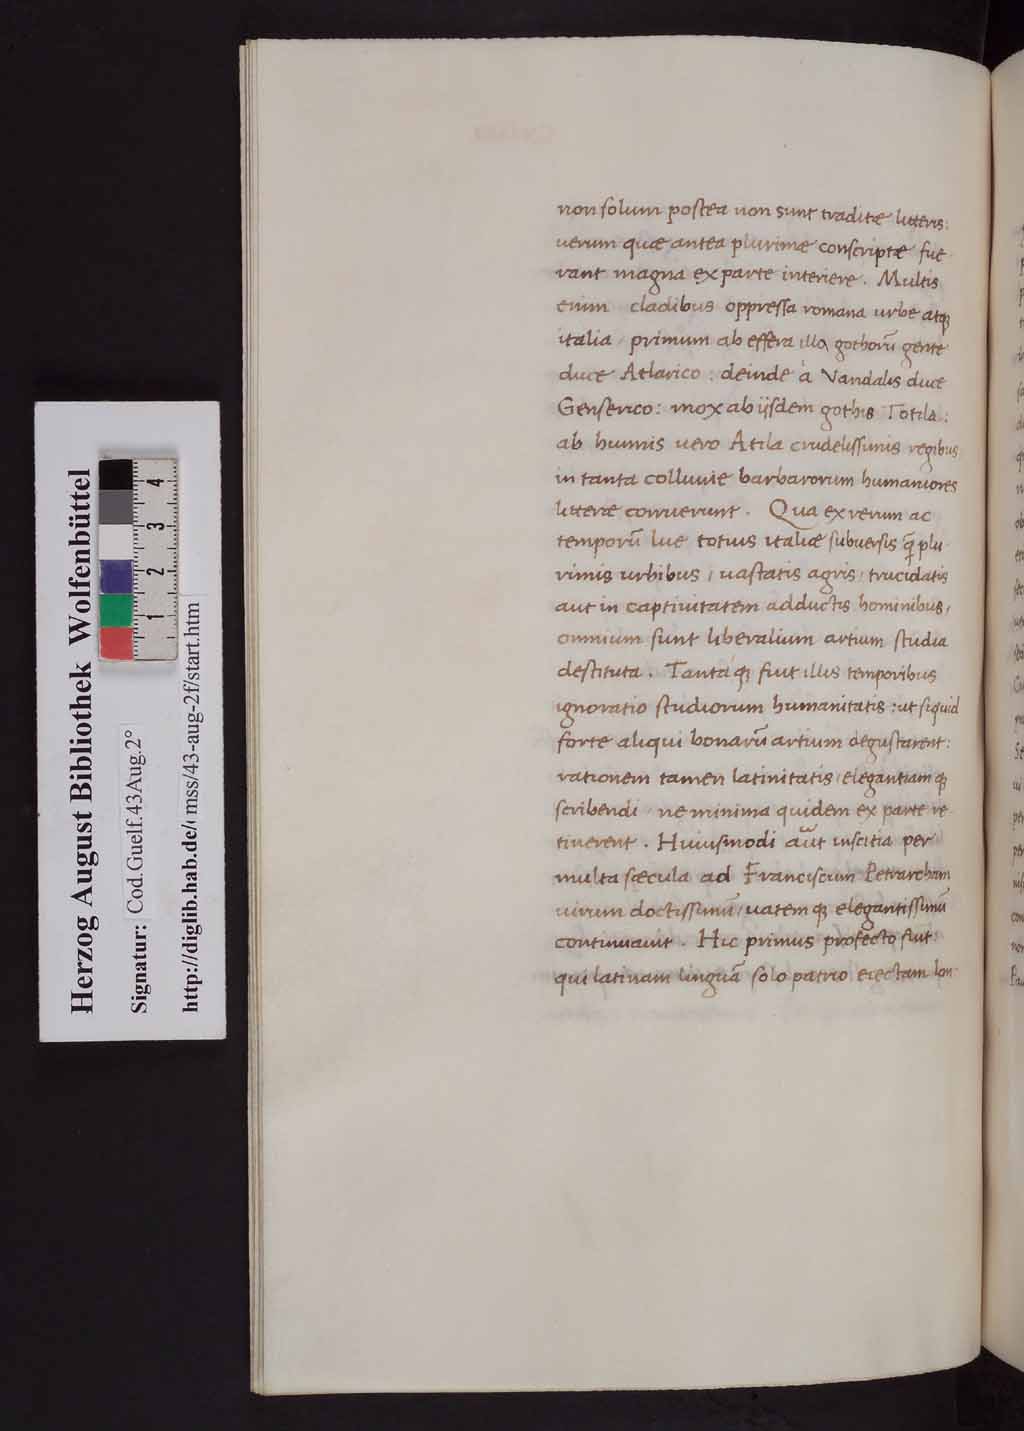 non solum postea non sunt traditæ litteris:
uerum quæ antea plurimæ conscriptæ fue
rant magna ex parte interiere. Multis
enim cladibus oppressa romana urbe atqȝ
italia / primum ab effera illa gothorū gente
duce Atlarico: deinde à Vandalis duce
Genserico: mox ab ijsdem gothis Totila:
ab hunnis uero Atila crudelissimis regibus
in tanta colluuie barbarorum humaniores
litteræ corruerunt. Qua ex rerum ac
temporū lue totius italiæ subuersis q̄plu
rimis urbibus / uastatis agris / trucidatis
aut in captiuitatem adductis hominibus /
omnium sunt liberalium artium studia
destituta. Tantáqȝ fuit illis temporibus
ignoratio studiorum humanitatis: ut siquid
forte aliqui bonarū artium degustarent:
rationem tamen latinitatis / elegantiamqȝ
scribendi / ne minima quidem ex parte re
tinerent. Huiusmodi aūt inscitia per
multa sæcula ad Franciscum Petrarcham
uirum doctissimū / uatemqȝ elegantissimū
continuauit. Hic primus profecto fuit:
qui latinam linguā solo patrio eiectam lon
Herzog August Bibliothek Wolfenbüttel
Signatur: Cod.Guelf.43Aug.2°
http://diglib.hab.de/ mss/43-aug-2f/start.htm
1 2 3 4